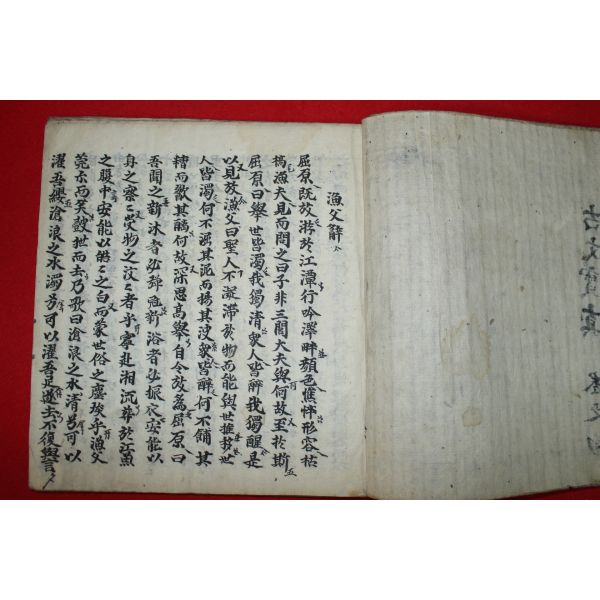 古文
漁父辭
屈原既放游於江潭行吟澤畔顔色憔悴形容枯
槁漁夫見而問之曰子非三閭大夫與何故至於斯
屈原曰舉世皆濁我獨清衆人皆醉我獨醒是
以見放漁父曰聖人不凝滯於物而能與世推移世
人皆濁何不淈其泥而揚其波衆皆醉何不餔其
糟而歠其醨何故深思高舉自令放爲屈原曰
吾聞之新沐者必彈冠新浴者必振衣安能以
身之察〻受物之汶〻者乎寧赴湘沉葬於江魚
之腹中安能以皓〻之白而蒙世俗之塵埃乎漁父
莞尒而笑鼓枻而去乃歌曰滄浪之水清兮可以
濯吾纓滄浪之水濁兮可以濯吾足遂去不復與言